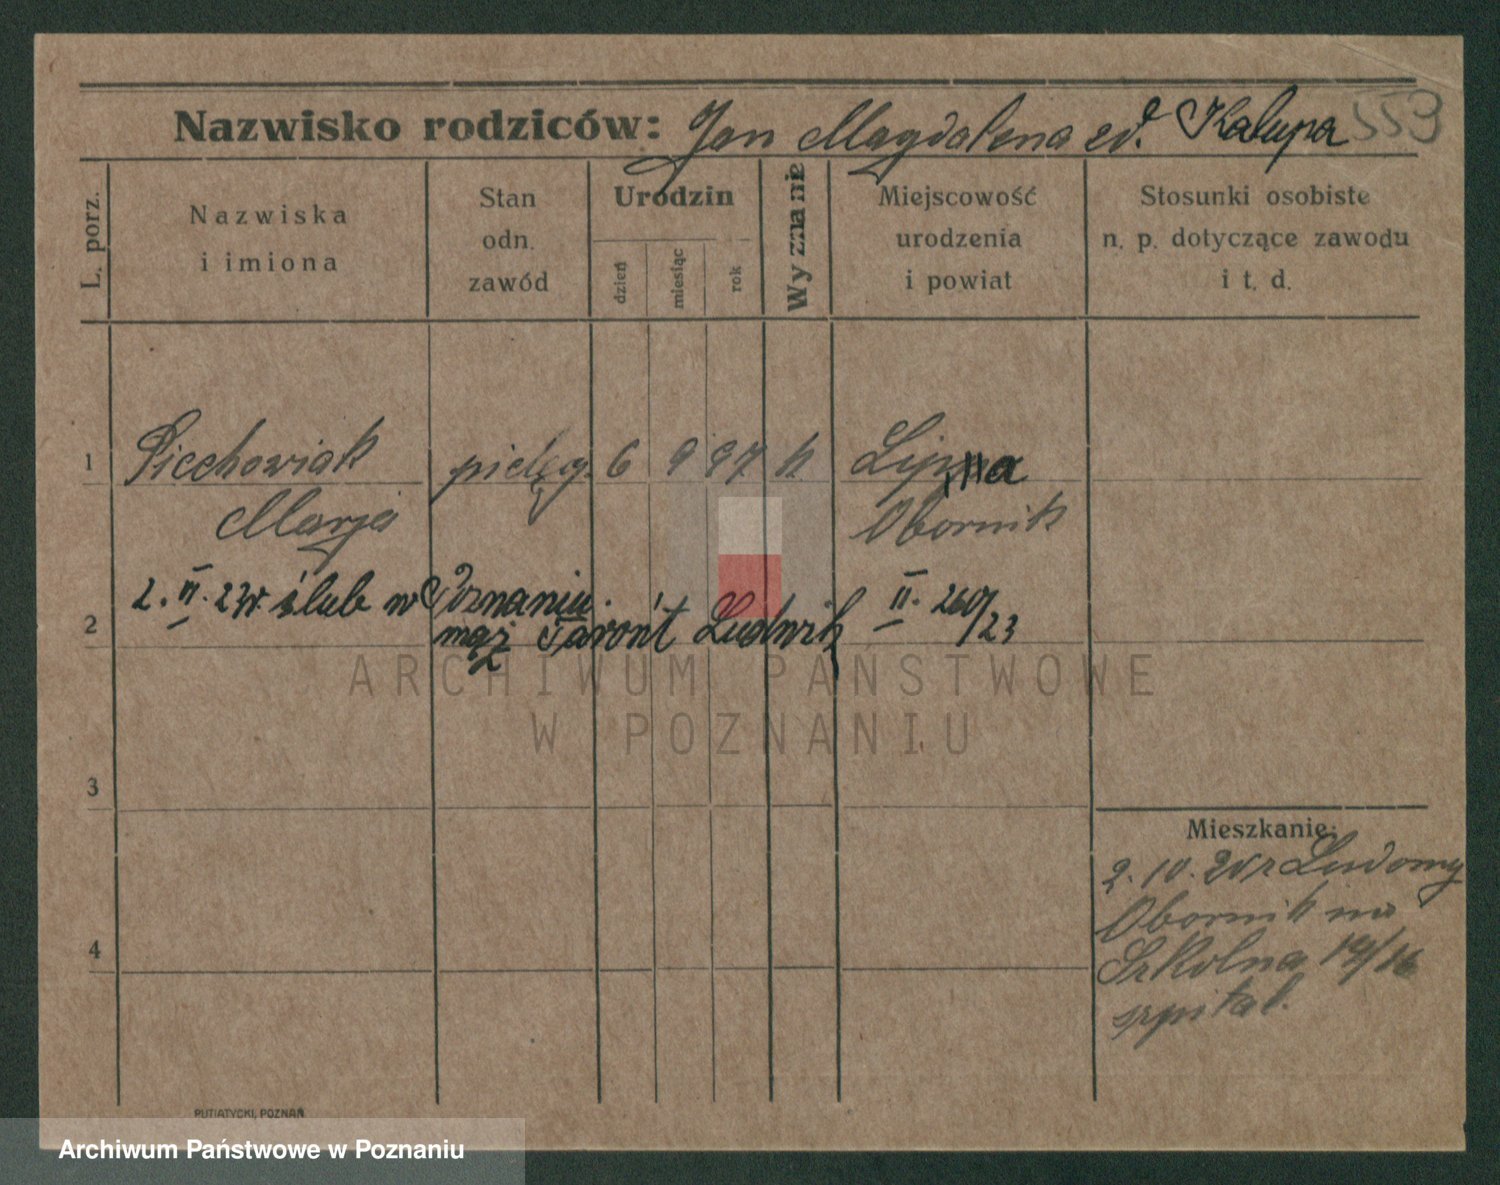 553
Nazwisko rodziców: Jan Magdalena zd. Kalupa
L. porz.
Nazwiska
i imiona
Stan
odn.
zawód
Urodzin
dzień
miesiąc
rok
Wyznanie
Miejscowość
urodzenia
i powiat
Stosunki osobiste
n. p. dotyczące zawodu
i t. d.
1 Piechowiak pielęg. 6 9 97 k
Marja Obornik
2. VI. 23r. ślub w Poznaniu. II. 260/23
2 mąż Ludwik
3
4
Mieszkanie:
2. 10. 20 r Ludomy
Obornik
Szkolna 14/16
szpital.
PUTIATYCKI, POZNAŃ
ARCHIWUM PAŃSTWOWE
W POZNANIU
Archiwum Państwowe w Poznaniu